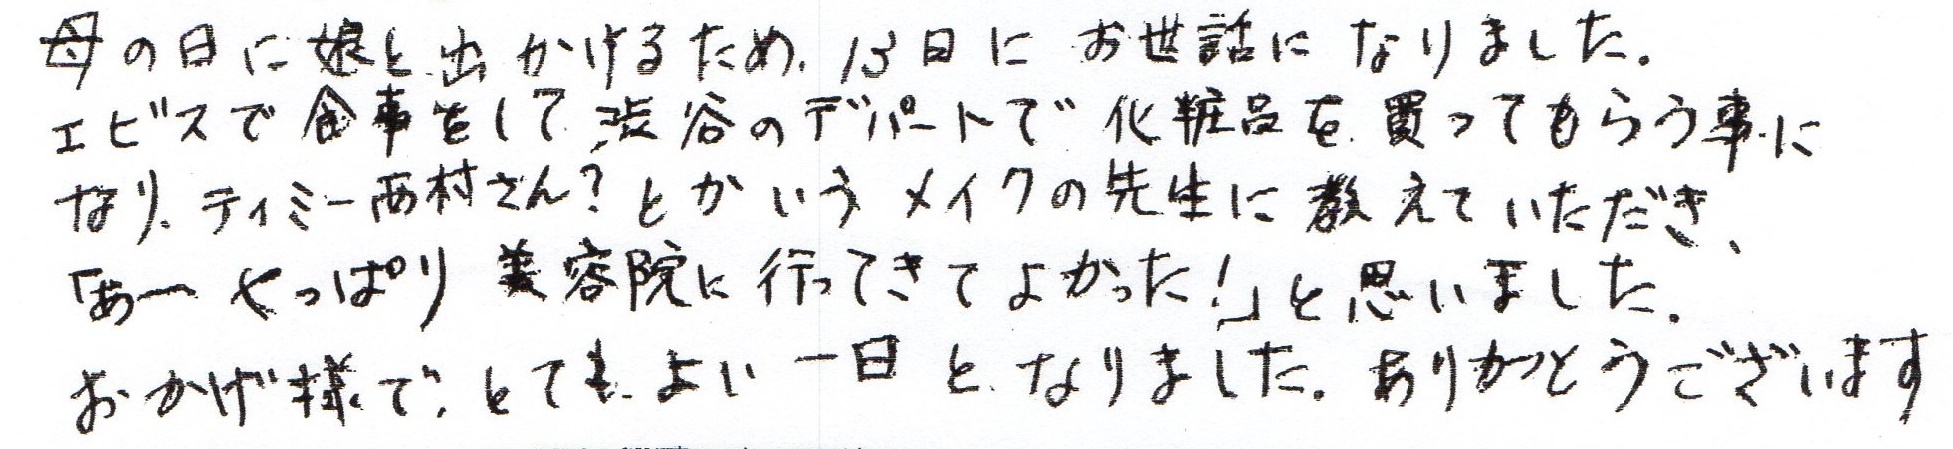 母の日に娘と出かけるため、13日にお世話になりました。
エビスで食事をして、渋谷のデパートで化粧品を買ってもらう事に
なり、ティミー西村さん？とかいうメイクの先生に教えていただき、
「あーやっぱり美容院に行ってきてよかった！」と思いました。
おかげ様で、とてもよい一日となりました。ありがとうございます